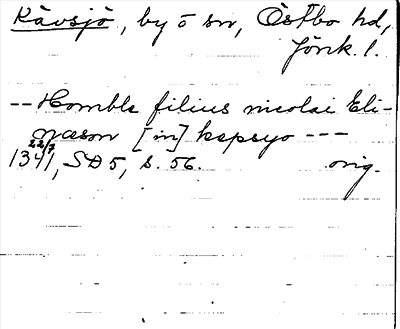 Kävsjö, by o sn, Östbo hd,
Jönk. l.
-- Homble filius nicolai Eli-
næson [in] kæpsyo ---
1341 22/7, SD 5, s. 56. orig.